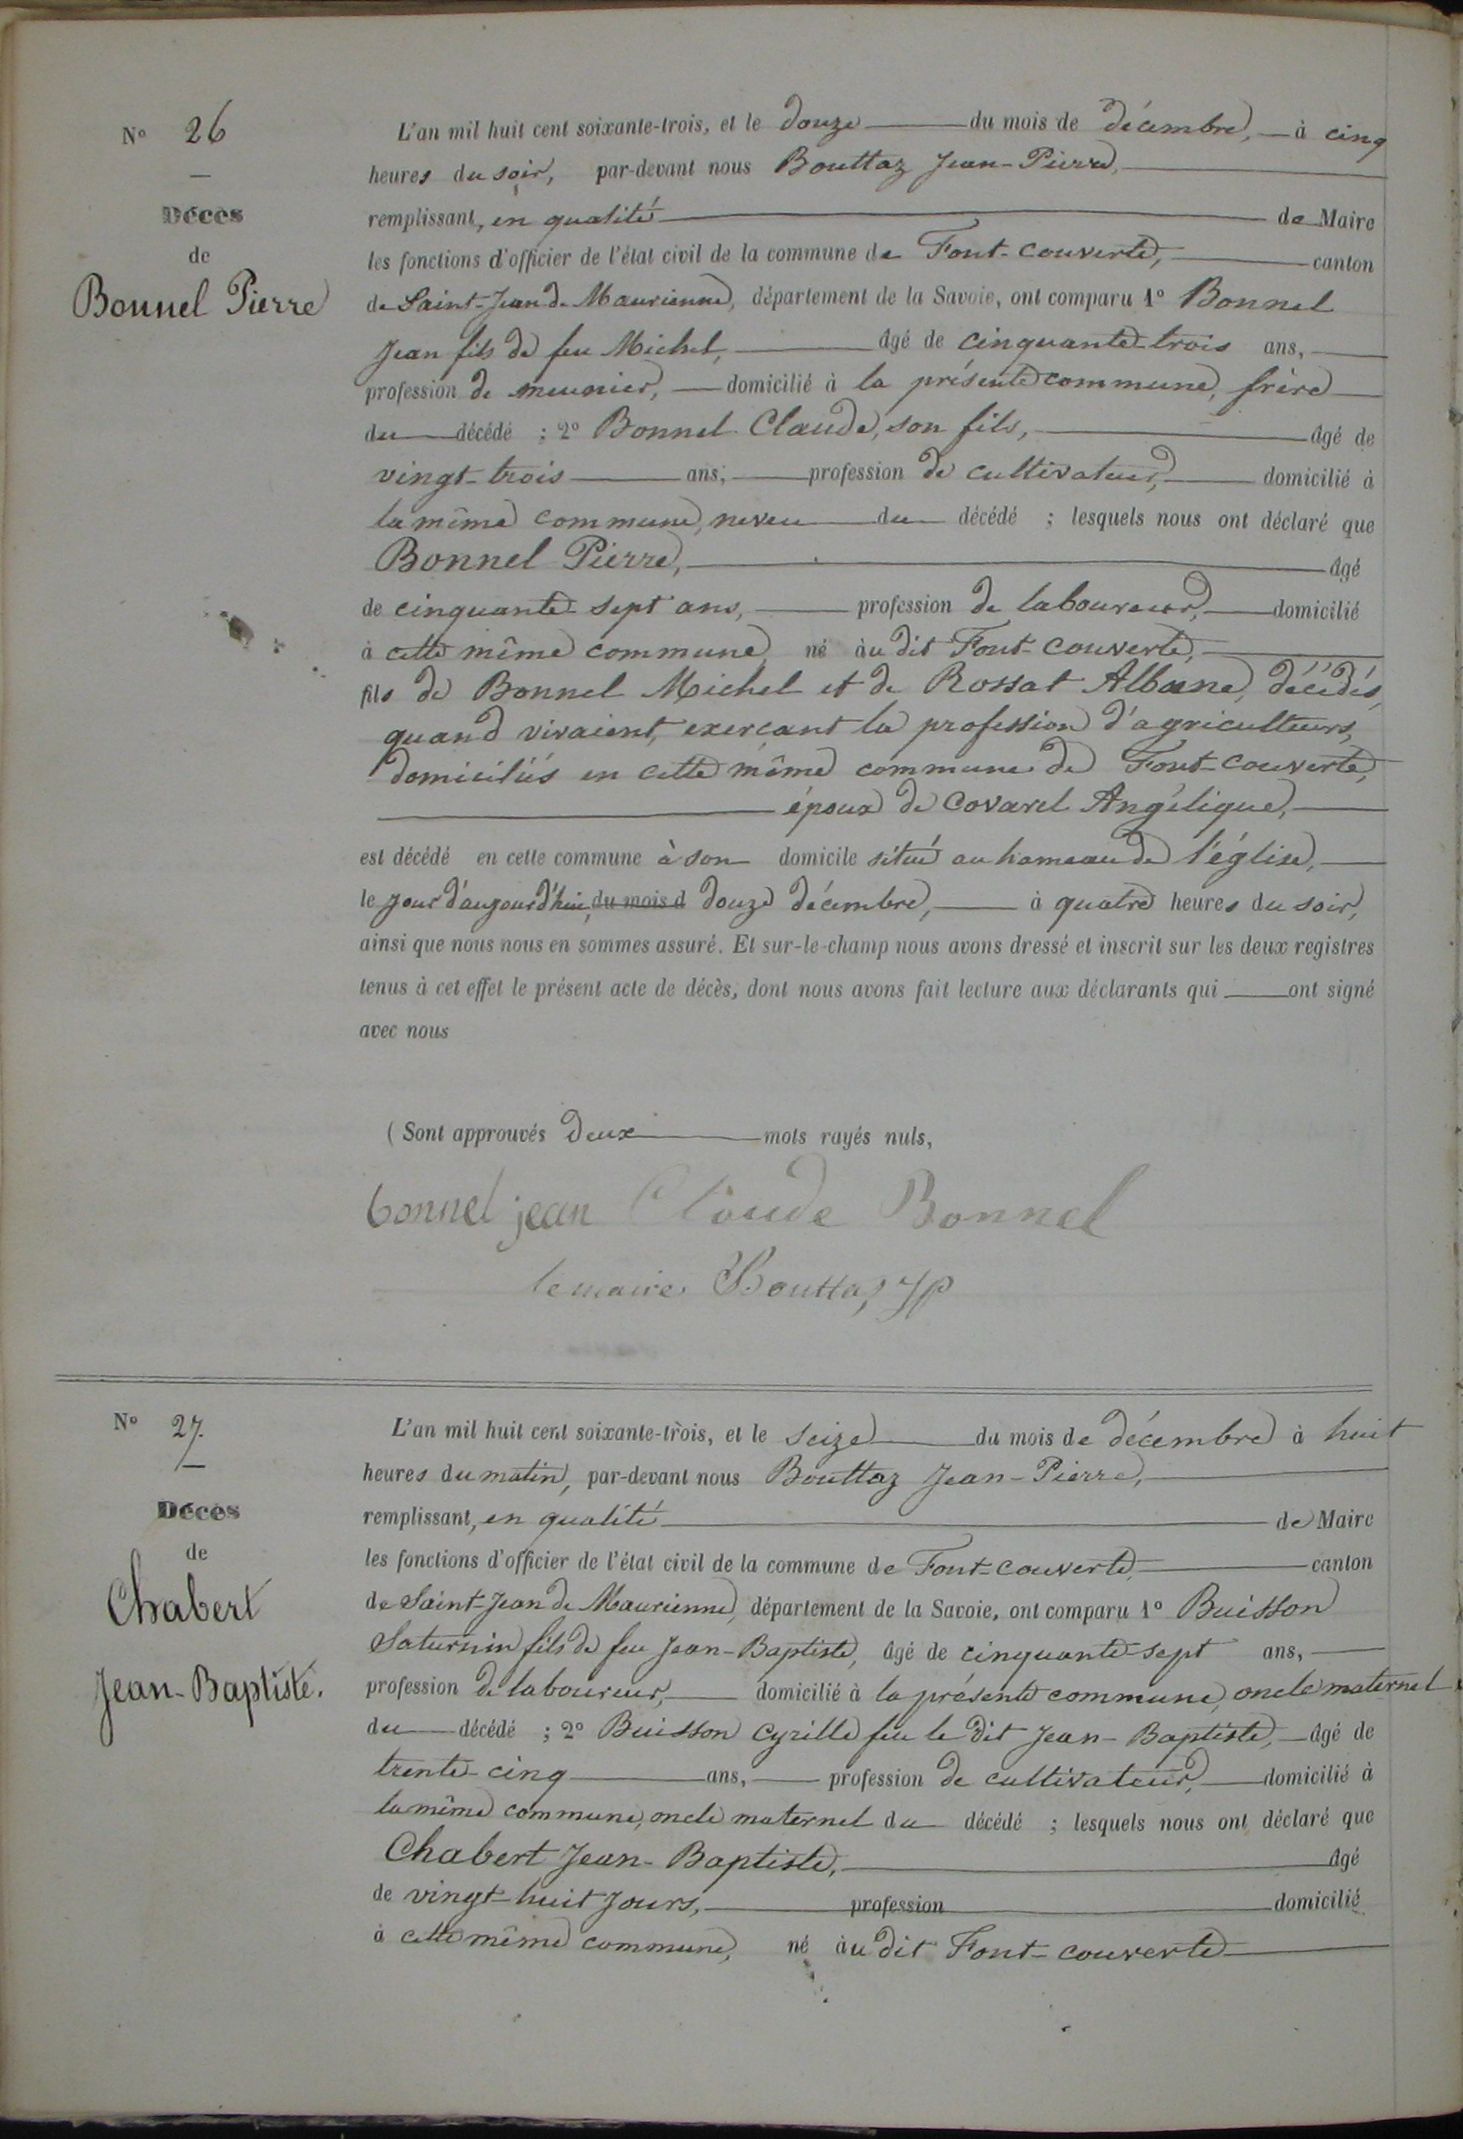 N° 26
Décès
de
Bonnel Pierre
L'an mil huit cent soixante-trois, et le douze du mois de décembre, à cinq
heures du soir, par-devant nous Bouttaz Jean-Pierre,
remplissant, en qualité de Maire
les fonctions d'officier de l'état civil de la commune de Font-couverte, canton
de Saint-Jean de Maurienne, département de la Savoie, ont comparu 1° Bonnel
Jean fils de feu Michel, âgé de cinquante-trois ans,
profession de meunier, domicilié à la présente commune, frère
du décédé ; 2° Bonnel Claude, son fils, âgé de
vingt-trois ans, profession de cultivateur, domicilié à
la même commune, neveu du décédé ; lesquels nous ont déclaré que
Bonnel Pierre, âgé
de cinquante-sept ans, profession de laboureur, domicilié
à cette même commune né àu dit Font-couverte,
fils de Bonnel Michel et de Rossat Albane, décédés,
quand vivaient, exerçant la profession d'agriculteurs,
domiciliés en cette même commune de Font-couverte,
époux de Covarel Angélique,
est décédé en cette commune à son domicile situé au hameau de l'église,
le jour d'aujourd'hui, du mois d douze décembre, à quatre heures du soir,
ainsi que nous nous en sommes assuré. Et sur-le-champ nous avons dressé et inscrit sur les deux registres
tenus à cet effet le présent acte de décès, dont nous avons fait lecture aux déclarants qui ont signé
avec nous
( Sont approuvés deux mots rayés nuls,
bonnel jean Claude Bonnel
le maire Bouttaz JP
N° 27.
Décès
de
Chabert
Jean-Baptiste.
L'an mil huit cent soixante-trois, et le seize du mois de décembre à huit
heures du matin, par-devant nous Bouttaz Jean-Pierre,
remplissant, en qualité de Maire
les fonctions d'officier de l'état civil de la commune de Font-couverte, canton
de Saint-Jean de Maurienne, département de la Savoie, ont comparu 1° Buisson
Saturnin fils de feu Jean-Baptiste, âgé de cinquante-sept ans,
profession de laboureur, domicilié à la présente commune, oncle maternel
du décédé ; 2° Buisson Cyrille feu le dit Jean-Baptiste, âgé de
trente-cinq ans, profession de cultivateur, domicilié à
la même commune, oncle maternel du décédé ; lesquels nous ont déclaré que
Chabert Jean-Baptiste, âgé
de vingt-huit jours, profession domicilié
à cette même commune, né àu dit Font-couverte